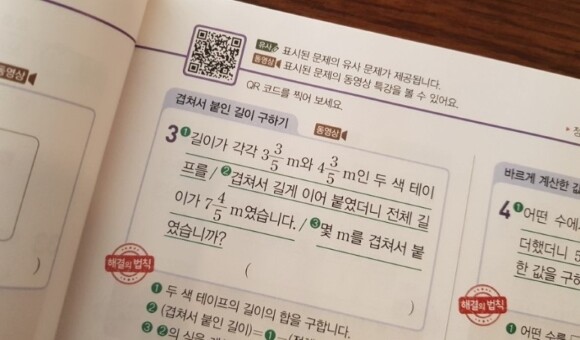 동영상
유사 표시된 문제의 유사 문제가 제공됩니다.
동영상 표시된 문제의 동영상 특강을 볼 수 있어요.
QR 코드를 찍어 보세요.
겹쳐서 붙인 길이 구하기
동영상
3 ❶길이가 각각 3 3/5 m와 4 3/5 m인 두 색 테이
프를 / ❷겹쳐서 길게 이어 붙였더니 전체 길
이가 7 4/5 m였습니다. / ❸몇 m를 겹쳐서 붙
였습니까?
( )
해결의 법칙
❶ 두 색 테이프의 길이의 합을 구합니다.
❷ (겹쳐서 붙인 길이)=❶-
❸ ❷의 식을
바르게 계산한 값
4 ❶어떤 수에
더했더니 5
한 값을 구하
해결의 법칙
❶ 어떤 수를